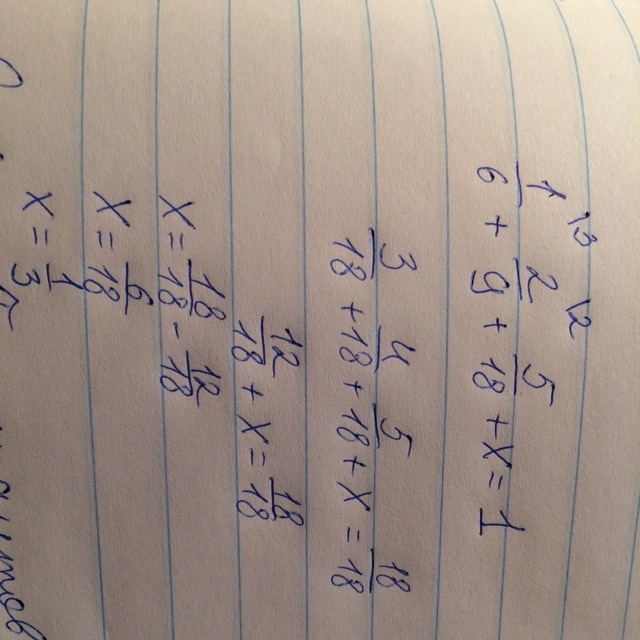 1/6 \3 + 2/9 \2 + 5/18 + x = 1
3/18 + 4/18 + 5/18 + x = 18/18
12/18 + x = 18/18
x = 18/18 - 12/18
x = 6/18
x = 1/3